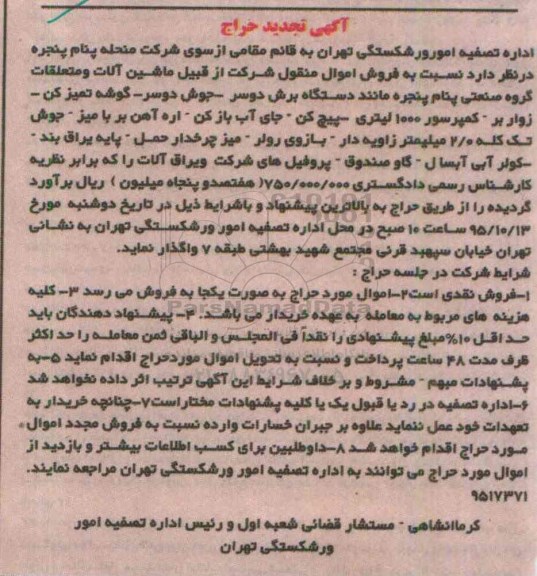 آگهی تجدید حراج
اداره تصفیه امورورشکستگی تهران به قائم مقامی ازسوی شرکت منحله پنام پنجره
درنظر دارد نسبت به فروش اموال منقول شرکت از قبیل ماشین آلات ومتعلقات
گروه صنعتی پنام پنجره مانند دستگاه برش دوسر -جوش دوسر- گوشه تمیز کن -
زوار بر - کمپرسور ۱۰۰۰ لیتری -پیچ کن - جای آب باز کن - اره آهن بر با میز - جوش
تک کله ۲/۰ میلیمتر زاویه دار - بازوی رولر - میز چرخدار حمل - پایه یراق بند -
-کولر آبی آبسال - گاو صندوق - پروفیل های شرکت ویراق آلات را که برابر نظریه
کارشناس رسمی دادگستری ۷۵۰/۰۰۰/۰۰۰( هفتصدو پنجاه میلیون ) ریال برآورد
گردیده را از طریق حراج به بالاترین پیشنهاد و باشرایط ذیل در تاریخ دوشنبه مورخ
۹۵/۱۰/۱۳ ساعت ۱۰ صبح در محل اداره تصفیه امور ورشکستگی تهران به نشانی
تهران خیابان سپهبد قرنی مجتمع شهید بهشتی طبقه ۷ واگذار نماید.
شرایط شرکت در جلسه حراج :
۱-فروش نقدی است۲-اموال مورد حراج به صورت یکجا به فروش می رسد ۳- کلیه
هزینه های مربوط به معامله به عهده خریدار می باشد. ۴- پیشنهاد دهندگان باید
حد اقل ۱۰%مبلغ پیشنهادی را نقداً فی المجلس و الباقی ثمن معامله را حد اکثر
ظرف مدت ۴۸ ساعت پرداخت و نسبت به تحویل اموال موردحراج اقدام نماید ۵-به
پشنهادات مبهم - مشروط و بر خلاف شرایط این آگهی ترتیب اثر داده نخواهد شد
۶-اداره تصفیه در رد یا قبول یک یا کلیه پشنهادات مختاراست۷-چنانچه خریدار به
تعهدات خود عمل ننماید علاوه بر جبران خسارات وارده نسبت به فروش مجدد اموال
مورد حراج اقدام خواهد شد ۸-داوطلبین برای کسب اطلاعات بیشتر و بازدید از
اموال مورد حراج می توانند به اداره تصفیه امور ورشکستگی تهران مراجعه نمایند.
۹۵۱۷۳۷۱
کرماانشاهی - مستشار قضائی شعبه اول و رئیس اداره تصفیه امور
ورشکستگی تهران
ParsNamadData